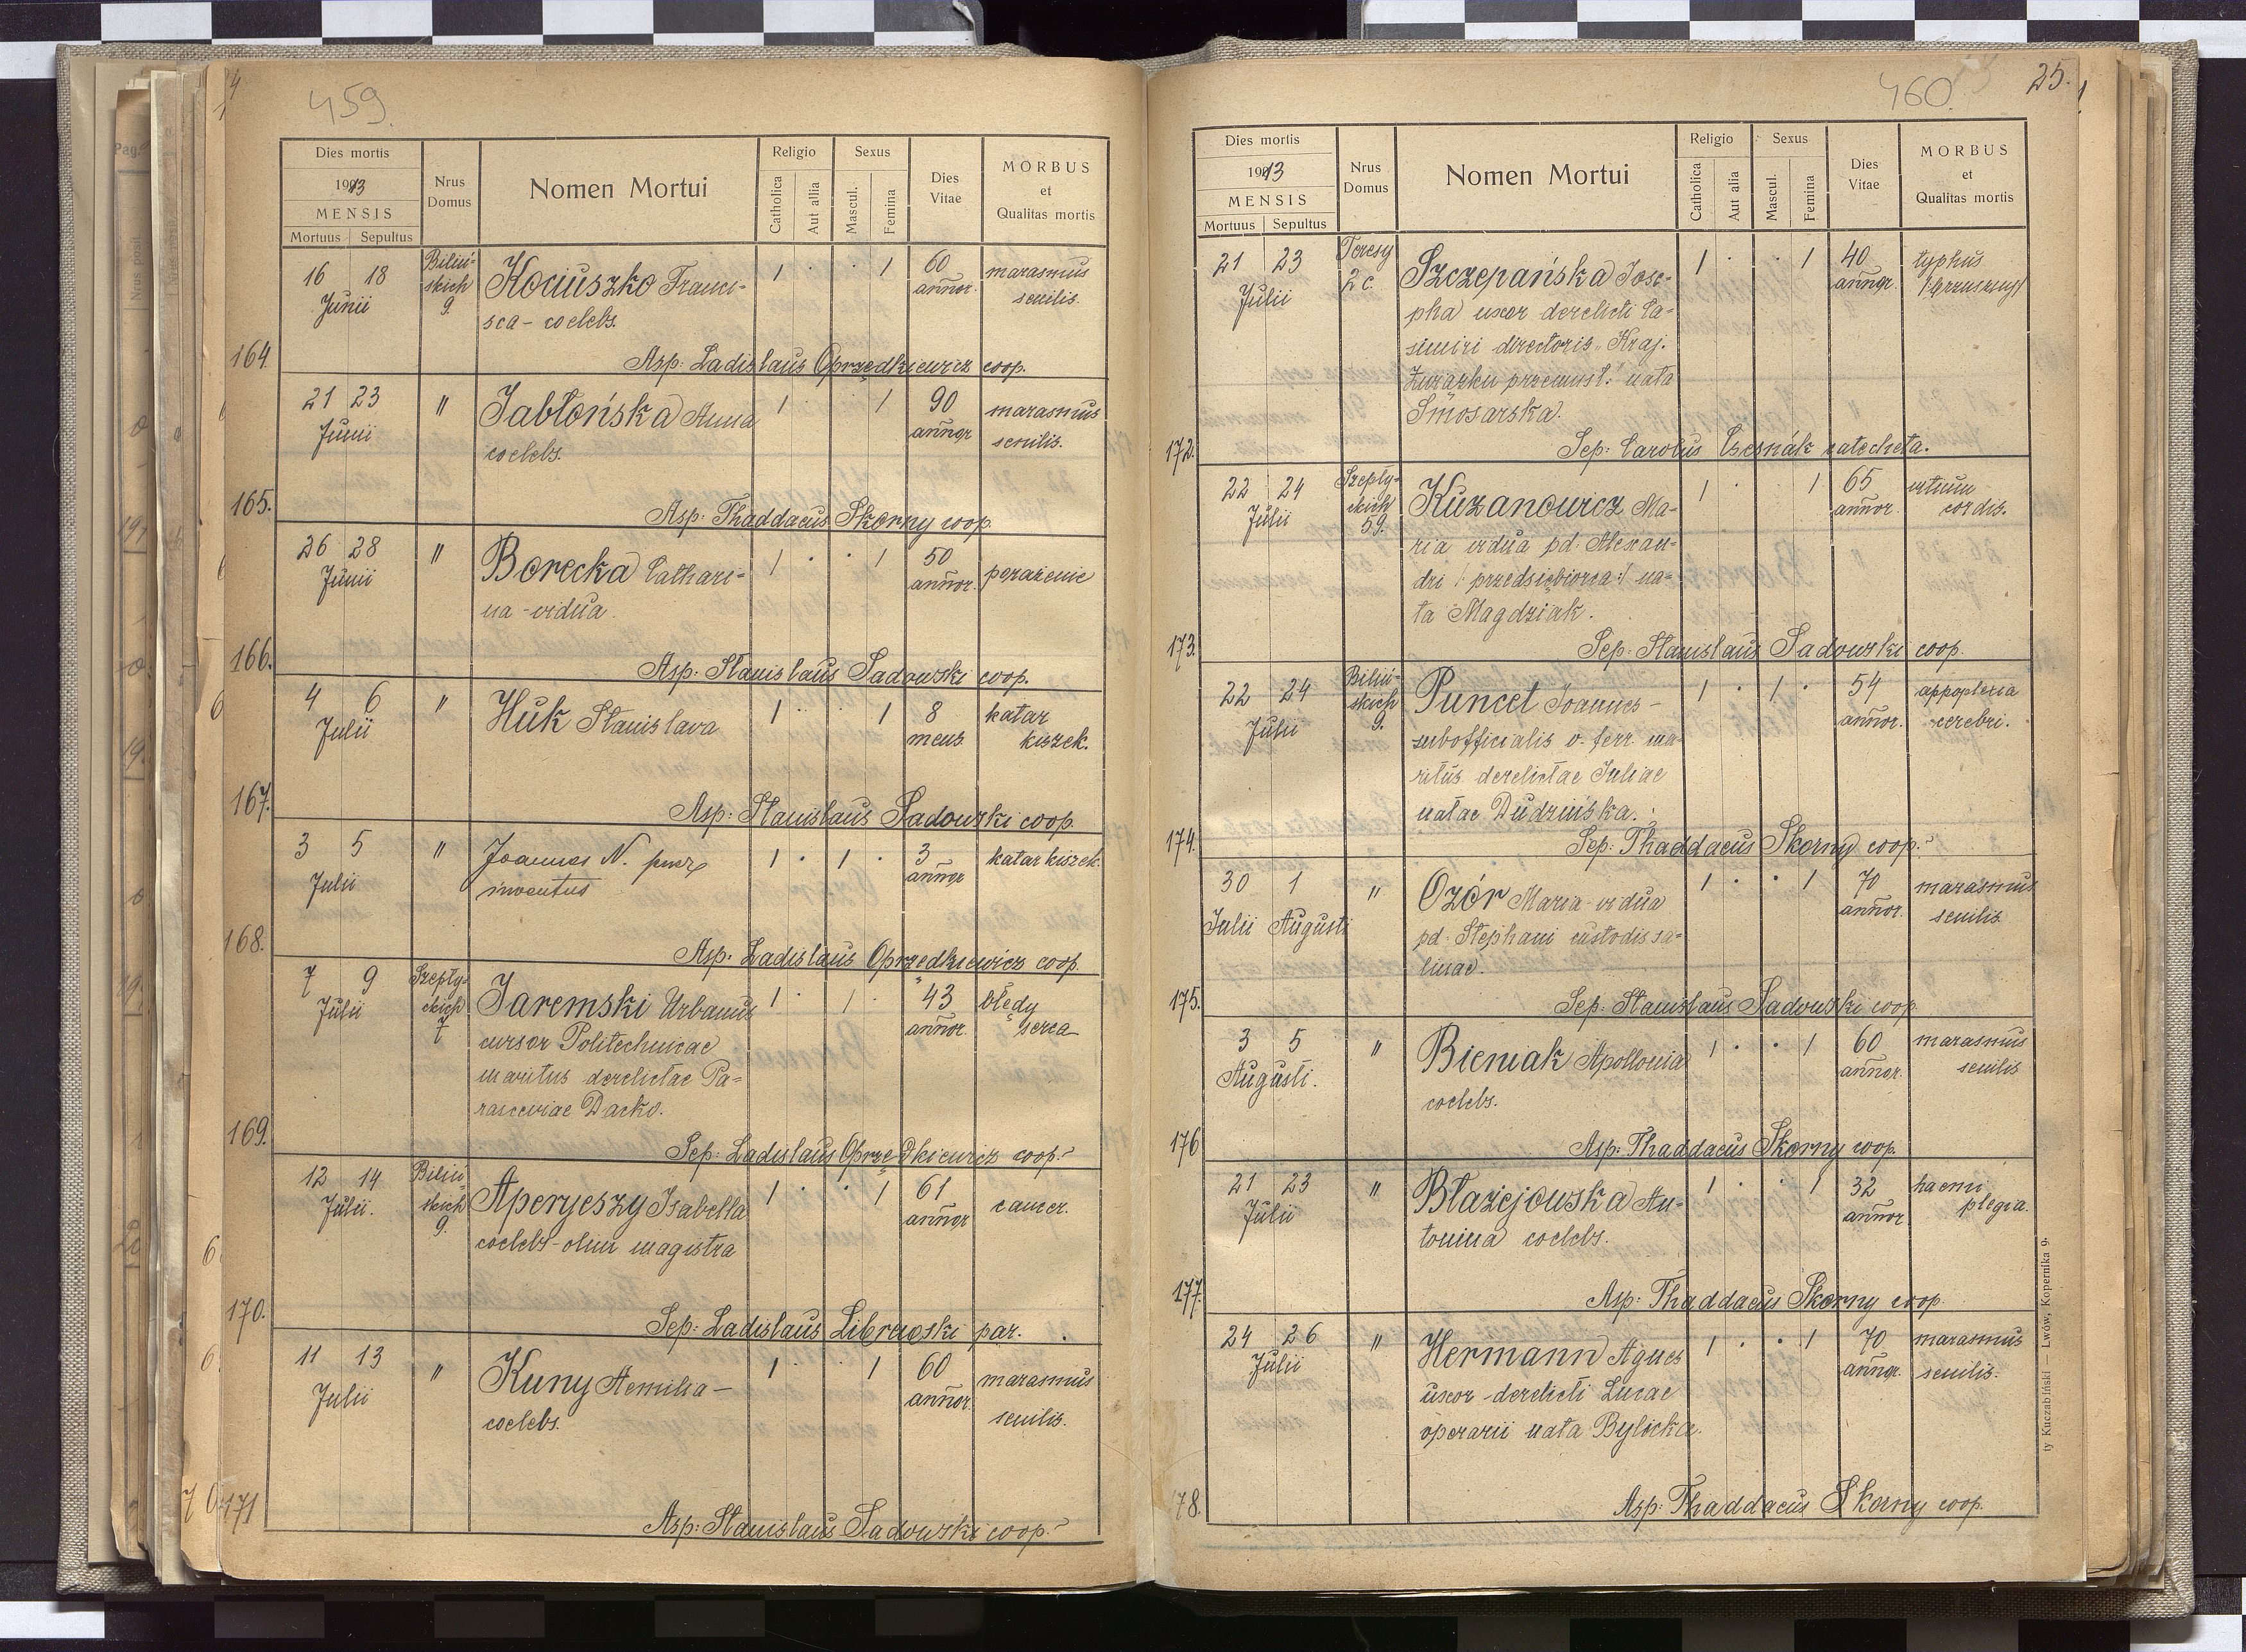 459.
Dies mortis
1913
MENSIS
Mortuus Sepultus
Nrus Domus
Nomen Mortui
Religio
Catholica
Aut allia
Sexus
Mascul.
Femina
Dies Vitae
MORBUS
et
Qualitas mortis
16 18 Biliń- Kociuszko Franci- 1 · · 1 60 marasmus
Junii skich 9. sca - coelebs. annor. senilis.
164. Asp: Ladislaus Oprzędkiewicz coop.
21 23 " Jabłońska Anna 1 · 1 90 marasmus
Junii coelebs. annor senilis.
165. Asp: Thaddaeus Skorny coop.
26 28 " Borecka Cathari- 1 · · 1 50 porażenie
Junii na - vidua annor.
166. Asp: Stanislaus Sadowski coop.
4 6 " Huk Stanislava 1 · 1 8 katar
Julii mens. kiszek.
167. Asp: Stanislaus Sadowski coop.
3 5 " Joannes N. puer 1 · 1 · 3 katar kiszek.
Julii inventus annor
168. Asp. Ladislaus Oprzędkiewicz coop.
7 9 Szepty- Jaremski Urbanus 1 · 1 · 43 błędy
Julii ckich 7 cursor Politechnicae annor. serca
maritus derelictae Pa-
rasceviae Dacko.
169. Sep: Ladislaus Oprzędkiewicz coop.
12 14 Biliń- Aperyeszy Isabella 1 · · 1 61 cancer.
Julii. skich 9. coelebs - olim magistra annor
170. Sep: Ladislaus Librewski par.
11 13 " Kuny Aemilia - 1 · 1 60 marasmus
Julii coelebs. annor. senilis.
171 Asp: Stanislaus Sadowski coop.
460.
25.
Dies mortis
1913
MENSIS
Mortuus Sepultus
Nrus Domus
Nomen Mortui
Religio
Catholica
Aut alia
Sexus
Mascul.
Femina
Dies Vitae
MORBUS
et
Qualitas mortis
21 23 Teresy Szczepańska Jose- 1 · · 1 40 typhus
Julii 2 c. pha uxor derelicti Ca- annor.
simiri directoris "Kraj.
Związku przemysł." nata
Smosarska.
172. Sep: Carolus Csesnák catecheta.
22 24 Szepty- Kuzanowicz Ma- 1 · 1 65 vitium
Julii ckich 59. ria vidua pd: Alexan- annor. cordis.
dri /: przedsiębiorca :/ na-
ta Magdziak.
173. Sep: Stanislaus Sadowski coop.
22 24 Biliń- Puncet Joannes - 1 · 1 · 54 appoplexia
Julii skich 9. subofficialis v. ferr. ma- annor. cerebri.
ritus derelictae Juliae
natae Dudzińska.
174. Sep: Thaddaeus Skorny coop.
30 1 " Ozór Maria - vidua 1 · · 1 70 marasmus
Julii Augusti pd: Stephani custodis sa- annor. senilis.
linae.
175. Sep: Stanislaus Sadowski coop.
3 5 " Bieniak Apollonia 1 · · 1 60 marasmus
Augusti. coelebs. annor. senilis
176 Asp: Thaddaeus Skorny coop.
21 23 " Błażejowska An- 1 · · 1 32 haemi
Julii tonina coelebs. annor. plegia.
177. Asp: Thaddaeus Skorny coop.
24 26 " Hermann Agnes 1 · · 1 70 marasmus
Julii uxor derelicti Lucae annor. senilis.
operarii nata Bylicka.
178. Asp: Thaddaeus Skorny coop.
ty Kuczabiński — Lwów, Kopernika 9.